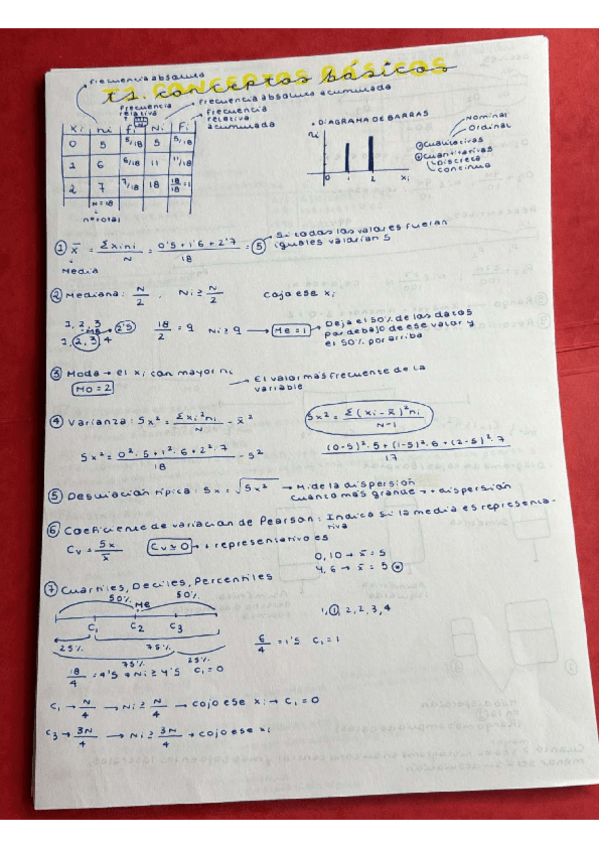 T1. CONCEPTOS BÁSICOS
conceptos básicos
frecuencia absoluta
frecuencia relativa
frecuencia absoluta acumulada
frecuencia relativa acumulada
xi ni fi Ni Fi
0 5 5/18 5 5/18
1 6 6/18 11 11/18
2 7 7/18 18 18/18 = 1
N = 18
nº total
• DIAGRAMA DE BARRAS
ni
0 1 2 xi
Cualitativas
Nominal
Ordinal
Cuantitativas
Discreta
continua
① x̄ = Σxini/N = 0'5 + 1'6 + 2'7/18 = 5 → Si todos los valores fueran iguales valdrían 5
Media
② Mediana: N/2, Ni ≥ N/2 cojo ese xi
1, 2, 3 2'5
1, 2, 3, 4
18/2 = 9 Ni ≥ 9 → Me = 1 → Deja el 50% de los datos por debajo de ese valor y el 50% por arriba
③ Moda → el xi con mayor ni
Mo = 2 → El valor más frecuente de la variable
④ Varianza: Sx² = Σxi²ni/N - x̄² Sx² = Σ(xi - x̄)²ni/N-1
Sx² = 0²·5 + 1²·6 + 2²·7/18 - 5² (0-5)²·5 + (1-5)²·6 + (2-5)²·7/17
⑤ Desviación típica: Sx = √Sx² → Mide la dispersión
cuanto más grande → + dispersión
⑥ Coeficiente de variación de Pearson: Indica si la media es representativa
Cv = Sx/x̄ Cv ≃ 0 → + representativo es
0, 10 → x̄ = 5
4, 6 → x̄ = 5
⑦ Cuartiles, Deciles, Percentiles
50% Me 50%
C1 C2 C3
25% 75%
75% 25%
1, 1, 2, 2, 3, 4
6/4 = 1'5 C1 = 1
18/4 = 4'5 → Ni ≥ 4'5 C1 = 0
C1 → N/4 → Ni ≥ N/4 → cojo ese xi → C1 = 0
C3 → 3N/4 → Ni ≥ 3N/4 → cojo ese xi